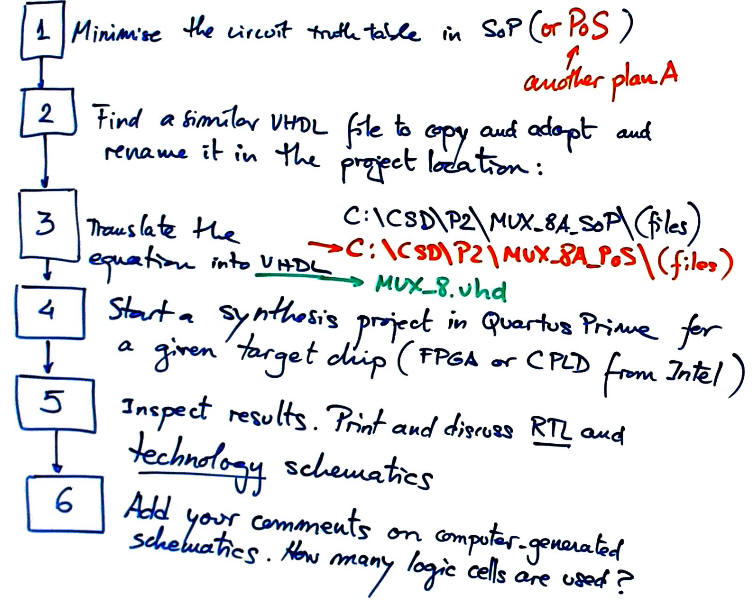 1 Minimise the circuit truth table in SoP (or PoS)
another plan A
2 Find a similar VHDL file to copy and adapt and
rename it in the project location:
C:\CSD\P2\MUX_8A_SoP\(files)
3 Translate the
C:\CSD\P2\MUX_8A_PoS\(files)
equation into VHDL
MUX_8.vhd
4 Start a synthesis project in Quartus Prime for
a given target chip (FPGA or CPLD from Intel)
5 Inspect results. Print and discuss RTL and
technology schematics
6 Add your comments on computer-generated
schematics. How many logic cells are used?